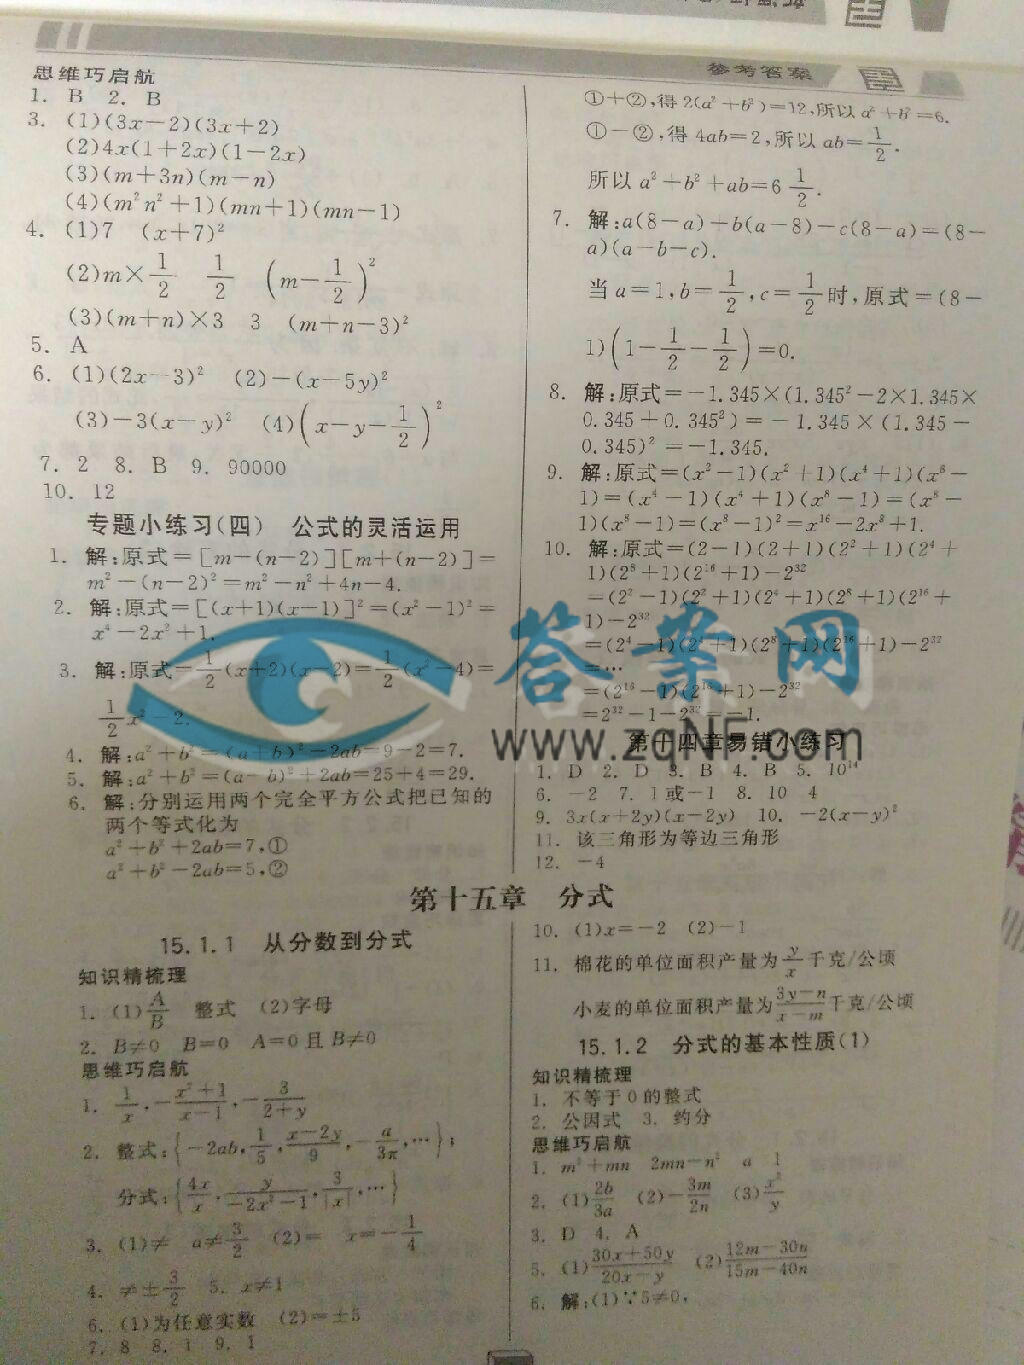 参考答案
思维巧启航
1. B 2. B
3. (1)(3x-2)(3x+2)
(2)4x(1+2x)(1-2x)
(3)(m+3n)(m-n)
(4)(m²n²+1)(mn+1)(mn-1)
4. (1)7 (x+7)²
(2)m×1/2 1/2 (m-1/2)²
(3)(m+n)×3 3 (m+n-3)²
5. A
6. (1)(2x-3)² (2)-(x-5y)²
(3)-3(x-y)² (4)(x-y-1/2)²
7. 2 8. B 9. 90000
10. 12
专题小练习(四) 公式的灵活运用
1. 解:原式=[m-(n-2)][m+(n-2)]=
m²-(n-2)²=m²-n²+4n-4.
2. 解:原式=[(x+1)(x-1)]²=(x²-1)²=
x⁴-2x²+1.
3. 解:原式=1/2(x+2)(x-2)=1/2(x²-4)=
1/2x²-2.
4. 解:a²+b²=(a+b)²-2ab=9-2=7.
5. 解:a²+b²=(a-b)²+2ab=25+4=29.
6. 解:分别运用两个完全平方公式把已知的
两个等式化为
a²+b²+2ab=7,①
a²+b²-2ab=5,②
①+②,得2(a²+b²)=12,所以a²+b²=6.
①-②,得4ab=2,所以ab=1/2.
所以a²+b²+ab=6 1/2.
7. 解:a(8-a)+b(a-8)-c(8-a)=(8-
a)(a-b-c).
当a=1,b=1/2,c=1/2时,原式=(8-
1)(1-1/2-1/2)=0.
8. 解:原式=-1.345×(1.345²-2×1.345×
0.345+0.345²)=-1.345×(1.345-
0.345)²=-1.345.
9. 解:原式=(x²-1)(x²+1)(x⁴+1)(x⁸-
1)=(x⁴-1)(x⁴+1)(x⁸-1)=(x⁸-
1)(x⁸-1)=(x⁸-1)²=x¹⁶-2x⁸+1.
10. 解:原式=(2-1)(2+1)(2²+1)(2⁴+
1)(2⁸+1)(2¹⁶+1)-2³²
=(2²-1)(2²+1)(2⁴+1)(2⁸+1)(2¹⁶+
1)-2³²
=(2⁴-1)(2⁴+1)(2⁸+1)(2¹⁶+1)-2³²
=…
=(2¹⁶-1)(2¹⁶+1)-2³²
=2³²-1-2³²=-1.
答案网
www.zqNF.com
第十四章易错小练习
1. D 2. D 3. B 4. B 5. 10¹⁴
6. -2 7. 1或-1 8. 10 4
9. 3x(x+2y)(x-2y) 10. -2(x-y)²
11. 该三角形为等边三角形
12. -4
第十五章 分式
15.1.1 从分数到分式
知识精梳理
1. (1)A/B 整式 (2)字母
2. B≠0 B=0 A=0且B≠0
思维巧启航
1. 1/x,-(x²+1)/(x-1),-3/(2+y)
2. 整式:{-2ab,1/5,(x-2y)/9,-a/3π,…};
分式:{4x/x,y/(-2x²-1),3/|x|,…}
3. (1)≠ a≠3/2 (2)= x=-1/4
4. ≠±3/2 5. x≠1
6. (1)为任意实数 (2)=±5
7. 8 8. 1 9. 1
10. (1)x=-2 (2)-1
11. 棉花的单位面积产量为y/x千克/公顷
小麦的单位面积产量为(3y-n)/(x-m)千克/公顷
15.1.2 分式的基本性质(1)
知识精梳理
1. 不等于0的整式
2. 公因式 3. 约分
思维巧启航
1. m²+mn 2mn-n² a 1
2. (1)2b/3a (2)-3m/2n (3)x²/y
3. D 4. A
5. (1)(30x+50y)/(20x-y) (2)(12m-30n)/(15m-40n)
6. 解:(1)∵5≠0,